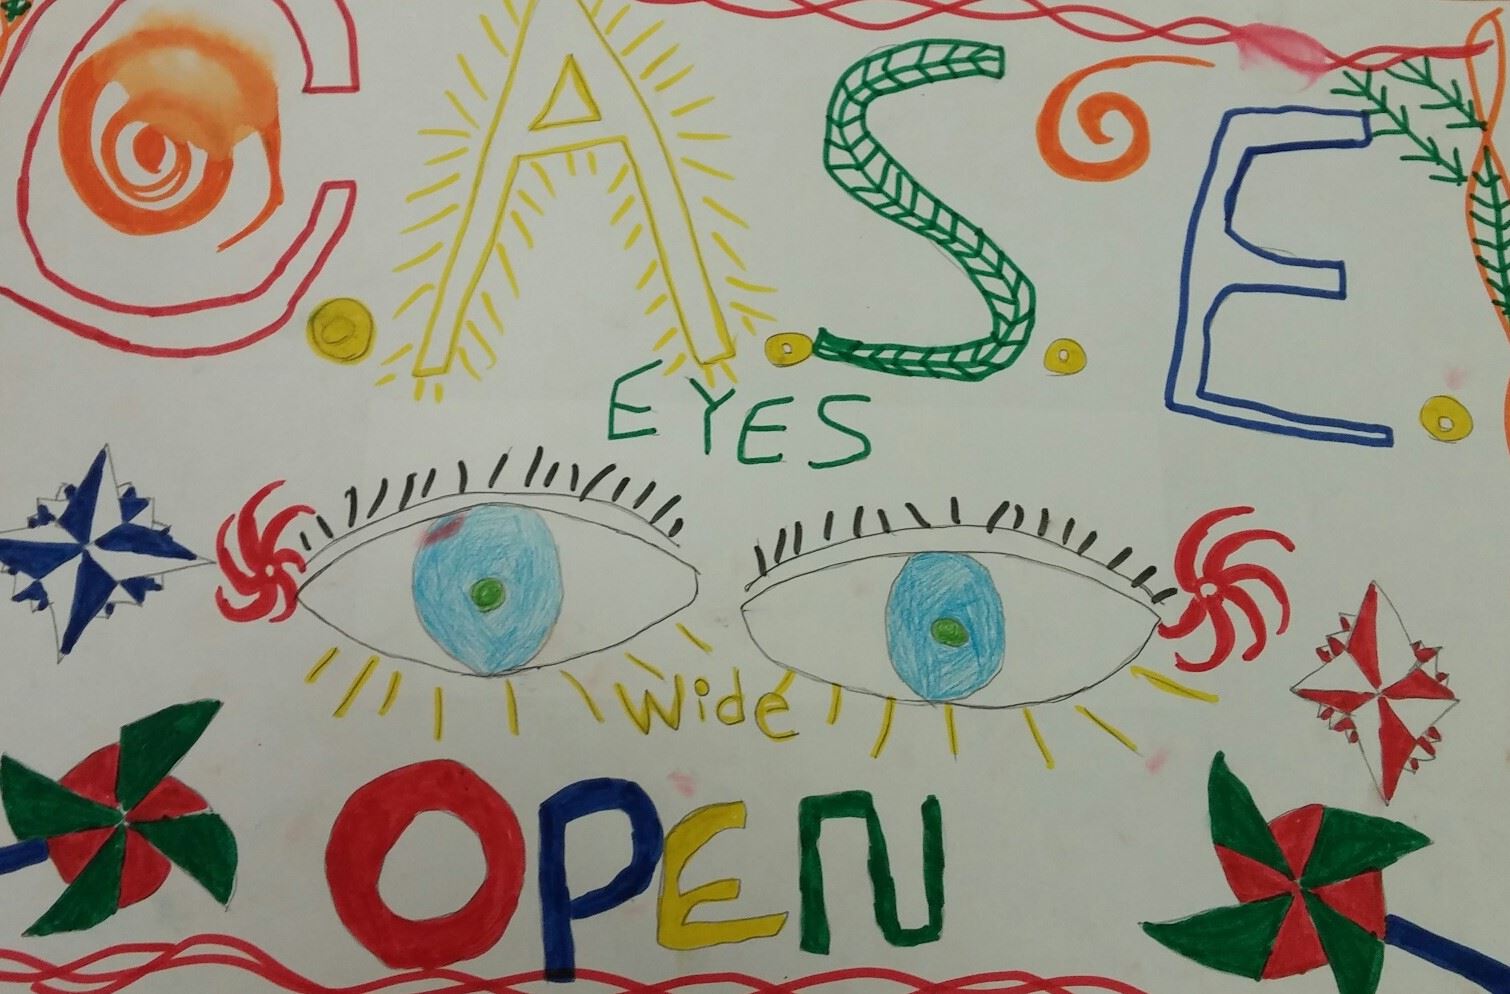 C.A.S.E.
EYES
Wide
OPEN